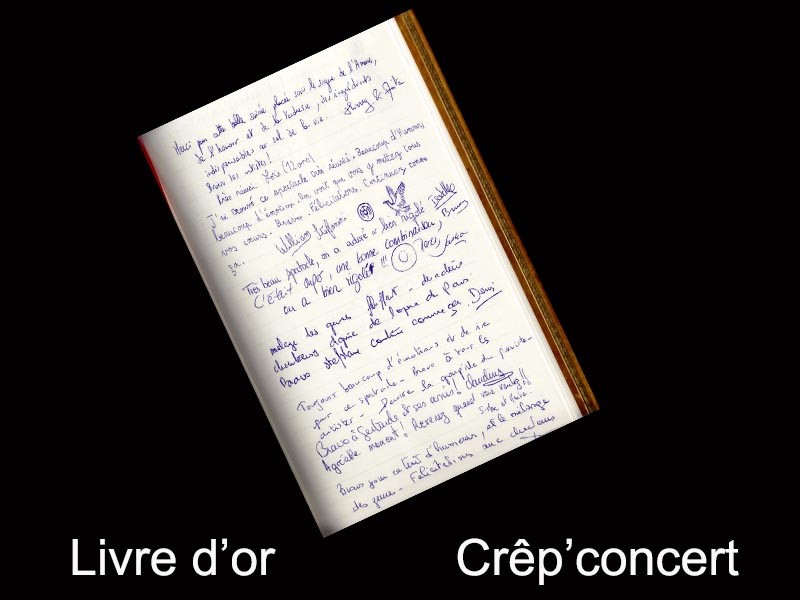 Merci pour cette belle soirée placée sous le signe de l'Amour,
de l'humour et de la tendresse, des ingrédients
indispensables au sel de la vie.
Bravo les artistes!
Très réussi Loïs (12 ans)
J'ai trouvé ce spectacle très réussi. Beaucoup d'Humour,
beaucoup d'émotion. On voit que vous y mettez tous
vos cœurs. Bravo. Félicitations. Continuez comme
ça. William
Très beau spectacle, on a adoré et bien rigolé
C'était super, une bonne combinaison, Bravo
on a bien rigolé!!!
mélange des genres
chanteurs digne de l'opéra de Paris
Bravo Stéphane continue comme ça. Denis
Toujours beaucoup d'émotions et de rire
pour ce spectacle - Bravo à tous les
artistes - Denise la groupie du pianiste -
Bravo à Gertrude et ses amis! Claudine
Agréable moment! Revenez quand vous voulez!!
Bravo pour ce trait d'humour, et le mélange
des genres. Félicitations aux chanteurs
Livre d'or
Crêp'concert